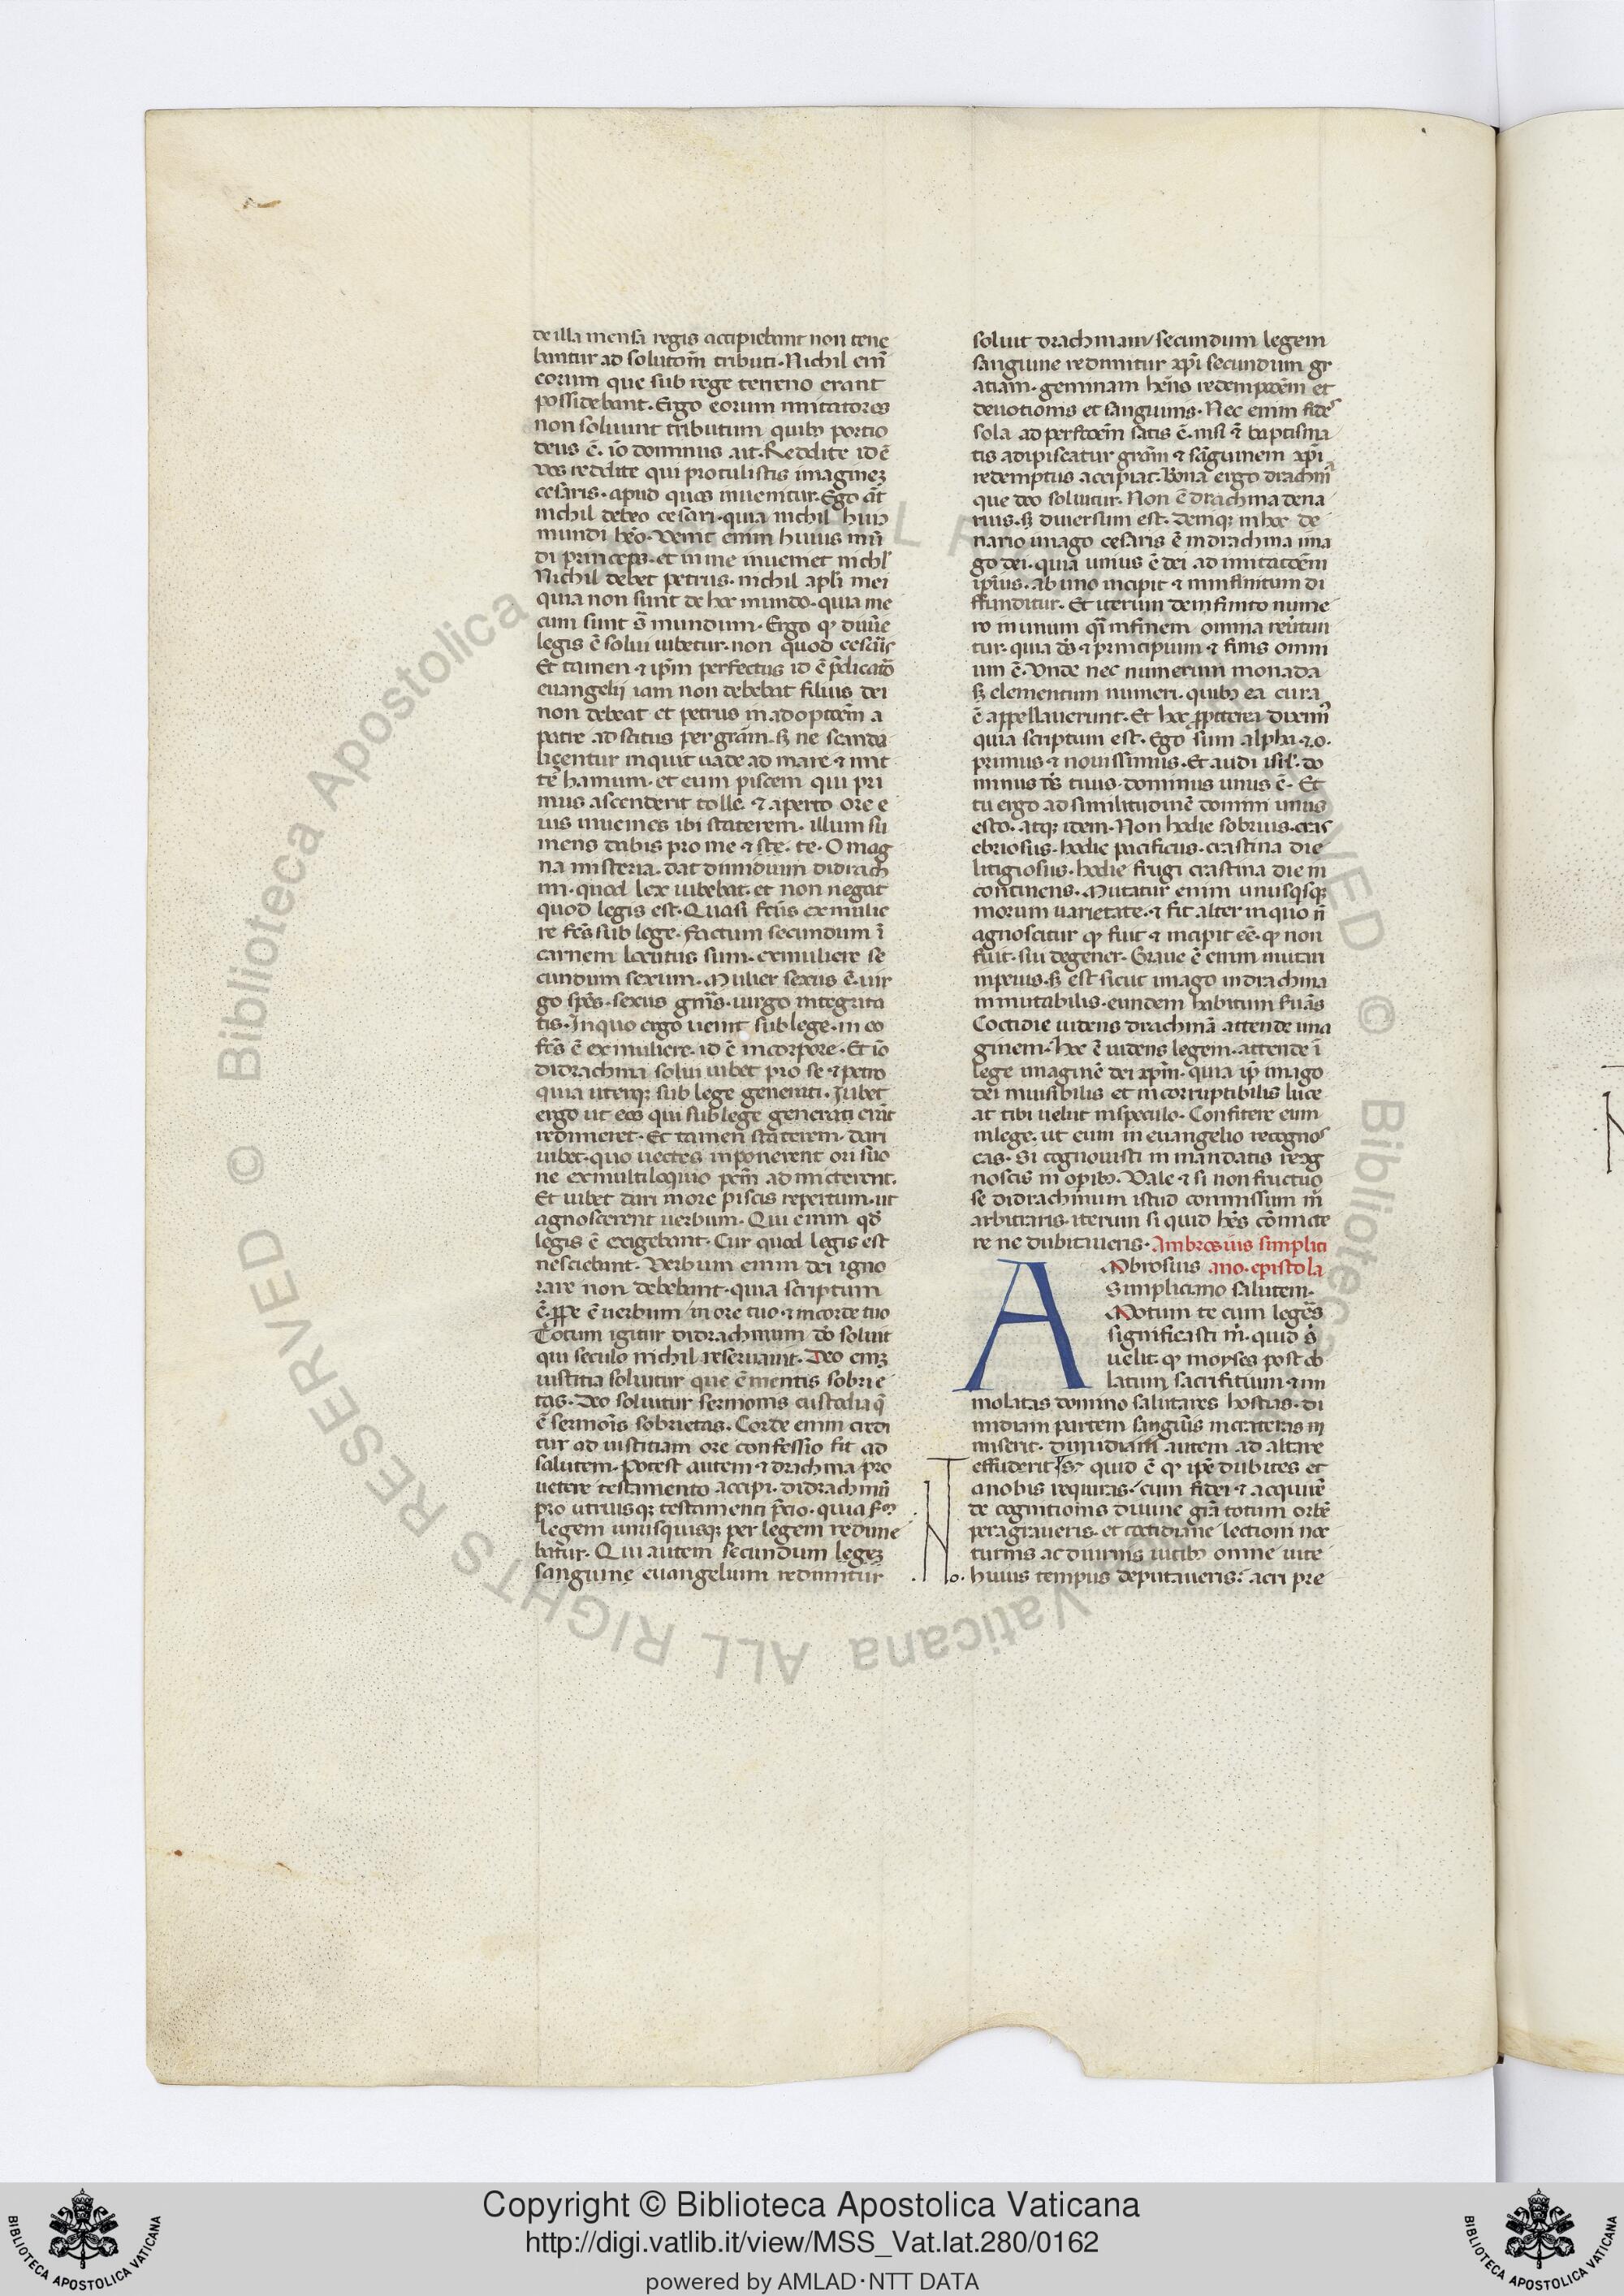 de illa mensa regis accipiebant non tene
bantur ad solutōm̄ tributi. Nichil eni͂
eorum que sub rege terreno erant
possidebant. Ergo eorum imitatores
non soluunt tributum quibꝫ portio
deus ē. io͂ dominus ait. Reddite id ē
vos reddite qui protulistis imagineꝫ
cesaris. apud quos inuenitur. Ego aūt
nichil debeo cesari. quia nichil huiꝰ
mundi hēo. Venit enim huius mū
di princeps. et in me inueniet nichl'
Nichil debet petrus. nichil apl'i mei
quia non sunt de hoc mundo. quia me
cum sunt s͂ mundum. Ergo qꝫ diui͂e
legis ē solui iubetur. non quod cesaris
Et tamen ⁊ ipm̄ perfectus id ē p̄dicatō
euangelij iam non debebat filius dei
non debeat et petrus in adoptōēm a
patre adscitus per grām. sꝫ ne scanda
liçentur inquit uade ad mare ⁊ mit
te hamum. et eum piscem qui pri
mus ascenderit tolle. ⁊ aperto ore e
ius inuenies ibi staterem. illum su
mens dabis pro me ⁊ te. O mag
na misteria. dat dimidium didrach
mi. quod lex iubebat. et non negat
quod legis est. Quasi fc͂us ex mulie
re fc͂s sub lege. factum secundum i͂
carnem locutus sum. ex muliere se
cundum sexum. Mulier sexus ē. uir
go sp͂es. sexus gn͂is. uirgo integrita
tis. In quo ergo uenit sub lege. in eo
fc͂s ē ex muliere. id ē in corpore. Et io͂
didrachma solui iubet pro se ⁊ petro
quia uterqꝫ sub lege generati. Iubet
ergo ut eos qui sub lege generati erāt
redimeret. Et tamen staterem dari
iubet. quo uectes imponerent ori suo
ne ex multiloquio pcm̄ admicterent.
Et iubet dari in ore piscis repertum. ut
agnoscerent uerbum. Qui enim qd͂
legis ē exigebant. Cur quod legis est
nesciebant. Verbum enim dei igno
rare non debebant. quia scriptum
ē. ꝓpe ē uerbum / in ore tuo. ⁊ in corde tuo
Totum igitur didrachmum deo soluit
qui seculo nichil reseruauit. Deo eniꝫ
iustitia soluitur que ē mentis sobrie
tas. Deo soluitur sermonis custodia q̄
ē sermonis sobrietas. Corde enim credi
tur ad iustitiam ore confessio fit ad
salutem. Potest autem ⁊ drachma pro
uetere testamento accipi. didrachmū
pro utriusqꝫ testamenti p̄cio. quia scdm
legem unusquisqꝫ per legem redime
batur. Qui autem secundum legeꝫ
sanguine euangelium redimitur
soluit drachmam / secundum legem
sanguine redimitur xp̄i secundum gr
atiam. geminam hn͂s redemptōēm et
deuotionis et sanguinis. Nec enim fides
sola ad perfectōēm satis ē. nisi ⁊ baptisma
tis adipiscatur grām ⁊ sanguinem xp̄i
redemptus accipiat. Bona ergo drachma
que deo soluitur. Non ē drachma dena
rius. sꝫ diuersum est. Deniqꝫ in hoc de
nario imago cesaris ē in drachma ima
go dei. quia unius ē dei ad imitatōēm
ip̄ius. ab uno incipit ⁊ in infinitum di
ffunditur. Et iterum de infinito nume
ro in unum q͂i in finem omnia reūtun
tur. quia ds̄ ⁊ principium ⁊ finis omni
um ē. Vnde nec numerum monada
sꝫ elementum numeri. quibꝫ ea cura
ē appellauerunt. Et hoc ꝓpterea diximꝰ
quia scriptum est. Ego sum alpha. ⁊ o.
primus ⁊ nouissimus. Et audi isrl'. do
minus ds̄ tuus. dominus unus ē. Et
tu ergo ad similitudinē domini unus
esto. atqꝫ idem. Non hodie sobrius. cras
ebriosus. hodie pacificus. crastina die
litigiosus. hodie frugi crastina die in
continens. Mutatur enim unusqsqꝫ
morum uarietate. ⁊ fit alter in quo n͂
agnoscitur qꝫ fuit ⁊ incipit ēe. qꝫ non
fuit. sui degener. Graue ē enim mutari
in peius. sꝫ est sicut imago in drachma
inmutabilis. eundem habitum suās
Coctidie uidens drachmā attende ima
ginem. hoc ē uidens legem. attende i͂
lege imaginē dei xp̄m. quia ip̄ imago
dei inuisibilis et incorruptibilis luce
at tibi uelut in speculo. Confitere eum
in lege. ut eum in euangelio recognos
cas. Si cognouisti in mandatis recog
noscis in opibꝫ. Vale ⁊ si non fructuo
se didrachmum istud commissum m͂
arbitraris. iterum si quid hēs cōmicte
re ne dubitaueris. Ambrosius simplici
Mbrosius ano. epistola
Simpliciano salutem.
Motum te cum legeres
significasti m͂. quid s͂
uelit. qꝫ moyses post ob
latum sacrifitium. ⁊ im
molatas domino salutares hostias. di
midiam partem sanguis in crateras in
miserit. dimidiam autem ad altare
effuderit. Sꝫ quid ē qꝫ ipē dubites et
a nobis requiras. cum fidei ⁊ acquirē
de cognitionis diuine grā totum orbē
peragraueris. et coctidiane lectioni noc
turnis ac diurnis uicibꝫ omne uite
huius tempus deputaueris. acri pre
Copyright © Biblioteca Apostolica Vaticana
http://digi.vatlib.it/view/MSS_Vat.lat.280/0162
powered by AMLAD·NTT DATA
BIBLIOTECA APOSTOLICA VATICANA
BIBLIOTECA APOSTOLICA VATICANA
© Biblioteca Apostolica Vaticana ALL RIGHTS RESERVED